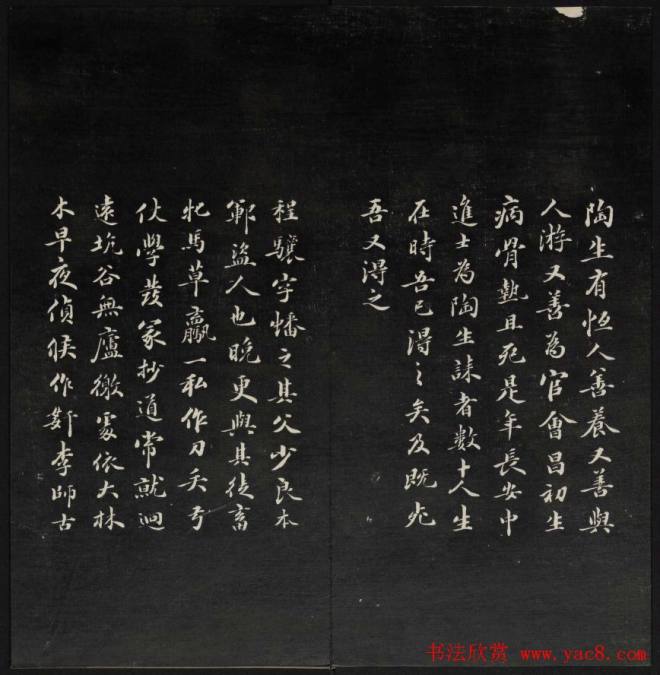 陶生有恆人善養又善與
人游又善為官會昌初生
病骨熱且死是年長安中
進士為陶生誄者數十人生
在時吾已得之矣及既死
吾又得之
程驤字蟠之其父少良本
鄆盜人也晚更與其徒畜
牝馬草驘一私作刀矢弓
仗學發冢抄道常就迥
遠坑谷無廬徼處依大林
木早夜偵候作姧李師古
书法欣赏 www.yac8.com